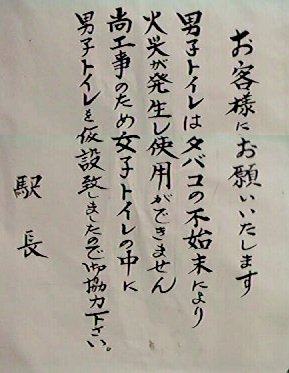 お客様にお願いいたします
男子トイレはタバコの不始末により
火災が発生し使用ができません
尚工事のため女子トイレの中に
男子トイレを仮設致しましたので御協力下さい。
駅長